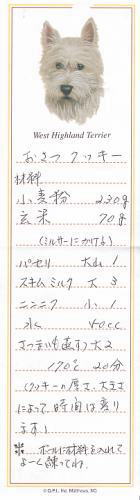 West Highland Terrier
おさつクッキー
材料
小麦粉 230g
玄米 70g
(ミルサーにかける)
パセリ 大山1
スキムミルク 大3
ニンニク 小1
水 40cc
さつまいも(裏す) 大2
170℃ 20分
(クッキーの厚さ、大きさ
によって時間は変り
ます)
※ ボールに材料を入れて
よーく練ってね。
© G.P.I., Inc. Matthews, NC